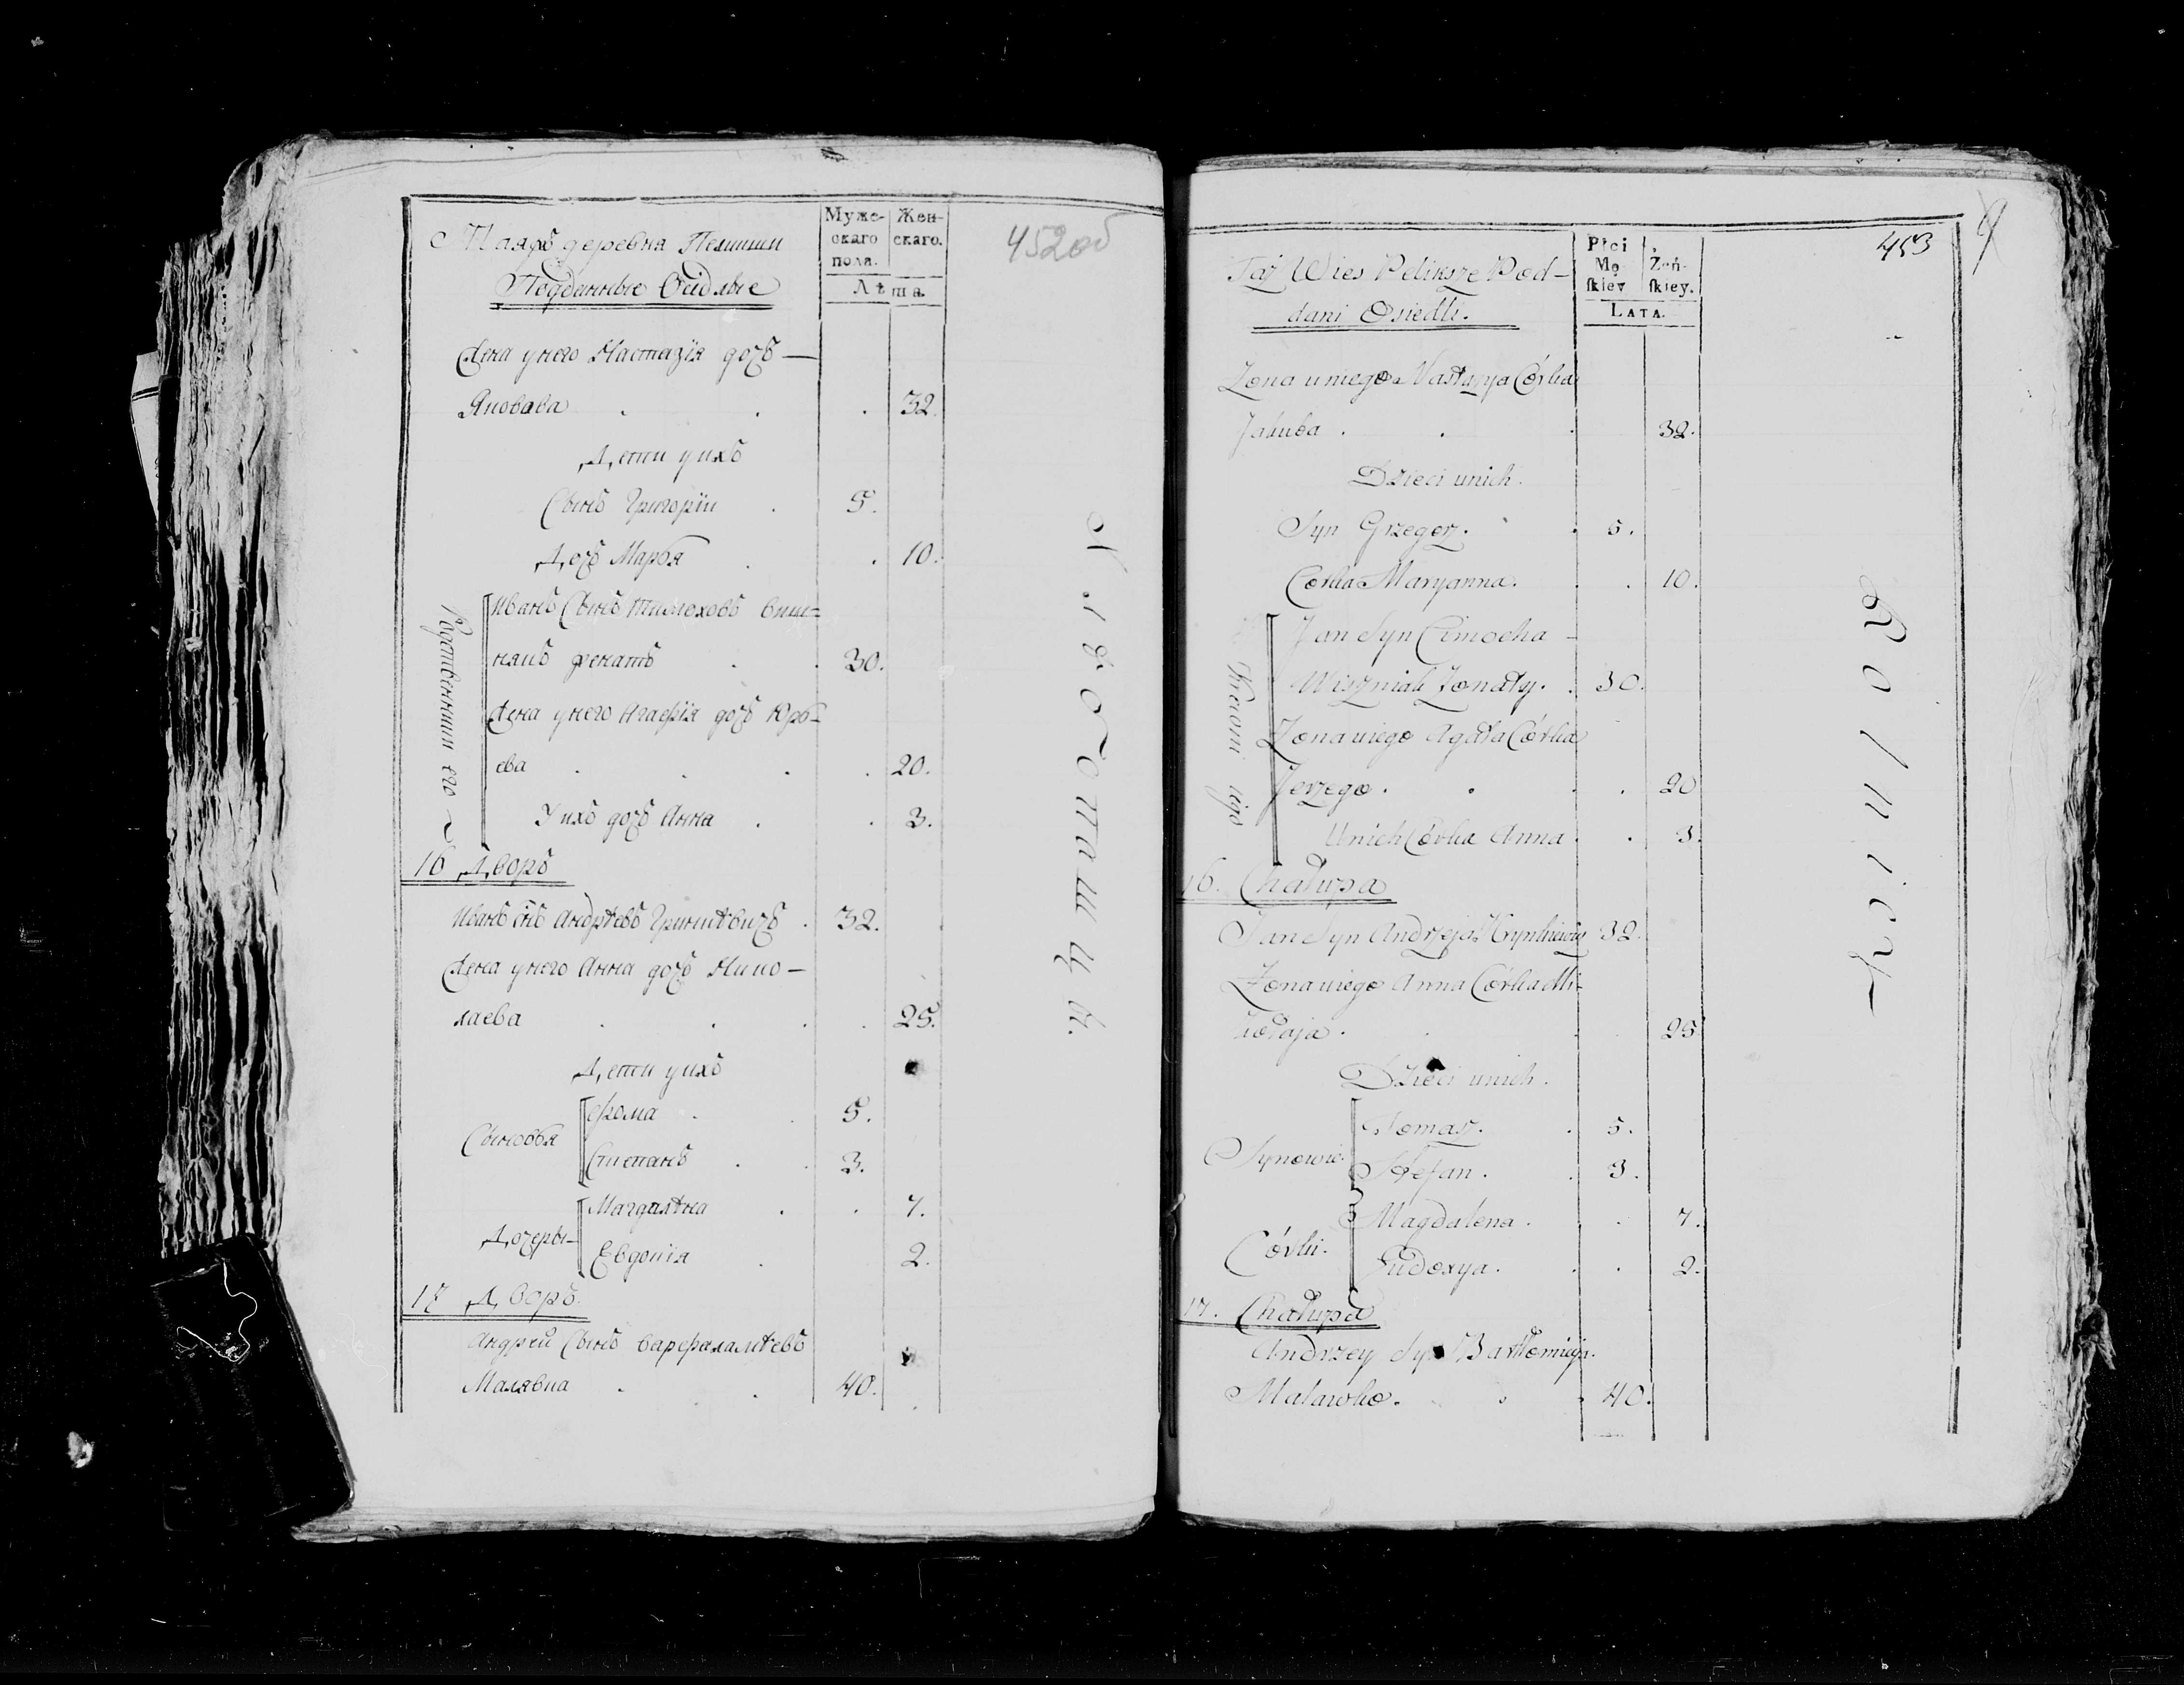 Муже-
скаго
пола.
Жен-
скаго.
Лѣта.
452 об
Таяжъ деревня Пеликши
Подданные Осидлые
Жена унего Настазія дочь —
Яковава . . . 32.
Дети уихъ
Сынъ Григоріи . 5.
Дочь Марья . . 10.
Родственники его
Иванъ Сынъ Тимоховъ виш=
някъ женатъ . . 30.
Жена унего Агафія дочь Юрь-
ева . . . . 20.
Уихъ дочь Анна . . 3.
16 Дворъ
Иванъ снъ Андрѣевъ Гринкѣвичъ . 32.
Жена унего Анна дочь Нико-
лаева . . . . 25.
Дети уихъ
Сыновья
Фома . . 5.
Степанъ . . 3.
Дочеры
Магдалѣна . . 7.
Евдокія . 2.
17 Дворъ.
Андрей Сынъ Варфаламѣевъ
Малявка . . 40.
Płci
Mę-
skiey
Żeń-
skiey.
LATA.
453
Taż Wies Peliksze Pod-
dani Osiedli.
Zona uniego Nastazya Córka
Jakuba . . . 32.
Dzieci unich.
Syn Grzegorz. . 5.
Corka Maryanna. . . 10.
Krewni iego
Jan Syn Cimocha -
Wiszniak Zonaty. . 30.
Zona uniego Agata Córka
Jerzego. . . . 20
Unich Córka Anna . . 3.
16. Chałupa
Jan Syn Andrzeja Hrynkiewicz 32.
Zona uniego Anna Córka Mi-
kołaja. . . 25
Dzieci unich.
Synowie.
Tomasz. . 5.
Stefan. . 3.
Córki.
Magdalena. . . 7.
Eudoxya. . . 2.
17. Chałupa
Andrzey Syn Bartłomieja.
Maławko. . . 40.